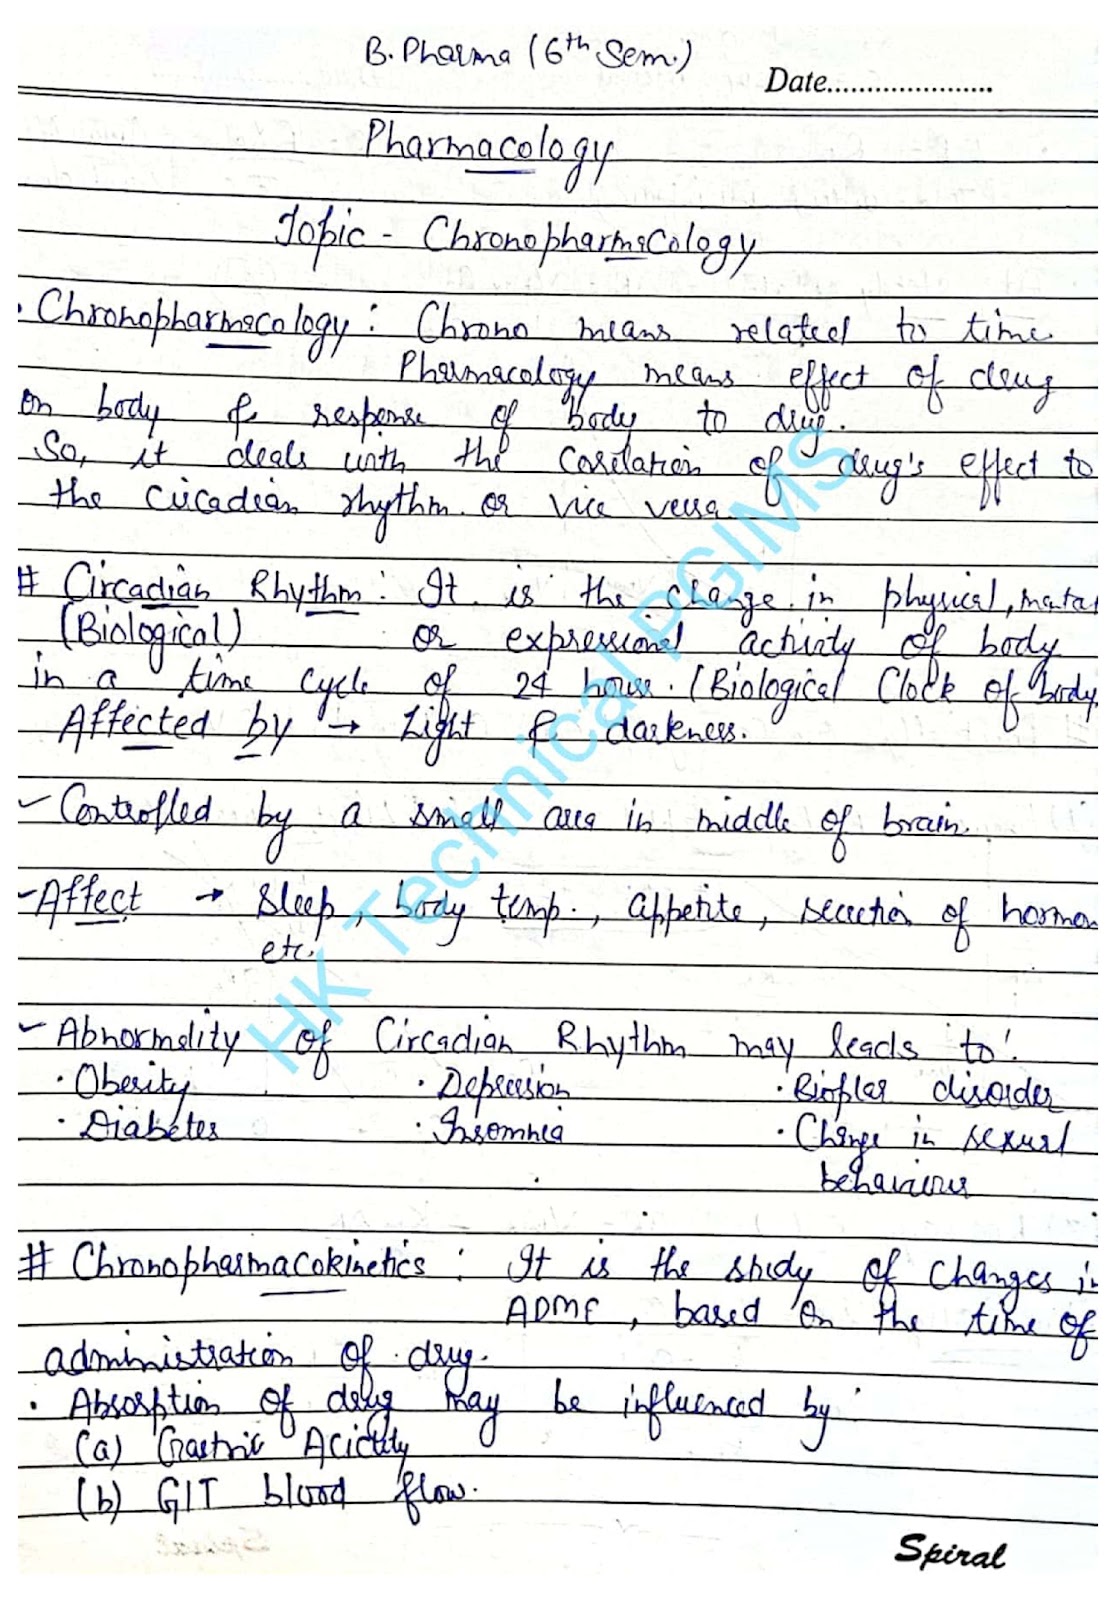 B. Pharma (6th Sem.)
Date.....................
Pharmacology
Topic - Chronopharmacology
• Chronopharmacology : Chrono means related to time
Pharmacology means effect of drug
on body & response of body to drug.
So, it deals with the Corelation of drug's effect to
the Circadian rhythm. or vice versa
# Circadian Rhythm : It is the change in physical, mental
(Biological) or expressional activity of body
in a time cycle of 24 hours. (Biological Clock of body
Affected by → Light & darkness.
✓ Controlled by a small area in middle of brain.
- Affect → Sleep, body temp., appetite, secretion of hormon
etc.
✓ Abnormality of Circadian Rhythm may leads to :
• Obesity • Depression • Bipolar disorder
• Diabetes • Insomnia • Change in sexual
behaviour
# Chronopharmacokinetics : It is the study of changes in
ADME, based on the time of
administration of drug.
• Absorption of drug may be influenced by :
(a) Gastric Acidity
(b) GIT blood flow.
Spiral
HK Technical PGIMS